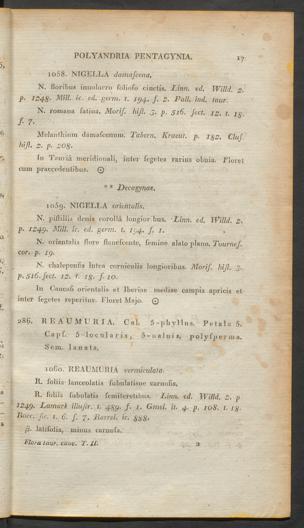 POLYANDRIA PENTAGYNIA. 17
1058. NIGELLA damascena,
N. floribus involucro folioso cinctis. Linn. ed. Willd. 2.
p. 1248. Mill. ic. ed. germ. t. 194. f. 2. Pall. ind. taur.
N. romana sativa. Moris. hist. 3. p. 516. sect. 12. t. 18.
f. 7.
Melanthium damascenum. Tabern. Kraeut. p. 182. Clus.
hist. 2. p. 208.
In Tauria meridionali, inter segetes rarius obvia. Floret
cum praecedentibus. ☉
** Decagynae.
1059. NIGELLA orientalis.
N. pistillis denis corollâ longioribus. Linn. ed. Willd. 2.
p. 1249. Mill. ic. ed. germ. t. 194. f. 1.
N. orientalis flore flavescente, semine alato plano. Tournef.
cor. p. 19.
N. chalepensis lutea corniculis longioribus. Moris. hist. 3.
p. 516. sect. 12. t. 18. f. 10.
In Caucasi orientalis et Iberiae mediae campis apricis et
inter segetes reperitur. Floret Majo. ☉
286. REAUMURIA. Cal. 5-phyllus. Petala 5.
Caps. 5-locularis, 5-valvis, polysperma.
Sem. lanata.
1060. REAUMURIA vermiculata.
R. foliis lanceolatis subulatisue carnosis.
R. foliis subulatis semiteretibus. Linn. ed. Willd. 2. p.
1249. Lamark illustr. t. 489. f. 1. Gmel. it. 4. p. 108. t. 18.
Bocc. sic. t. 6. f. 7. Barrel. ic. 888.
β. latifolia, minus carnosa.
Flora taur. cauc. T. II. 2